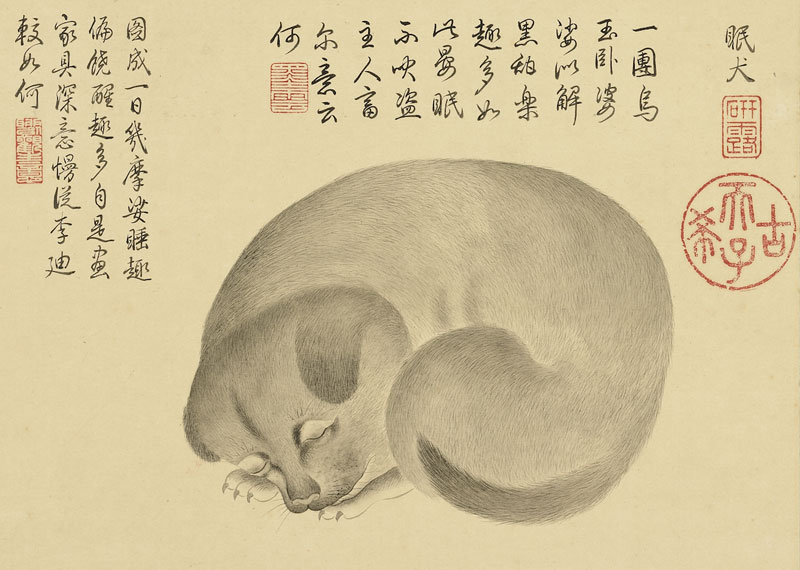 眠犬
研露
古希天子
一團烏
玉卧婆
娑似解
黑甜樂
趣多如
此晏眠
不吠盜
主人畜
尔意云
何
圖成一日幾摩娑睡趣
偏饒醒趣多自是畫
家具深意慢從李迪
較如何